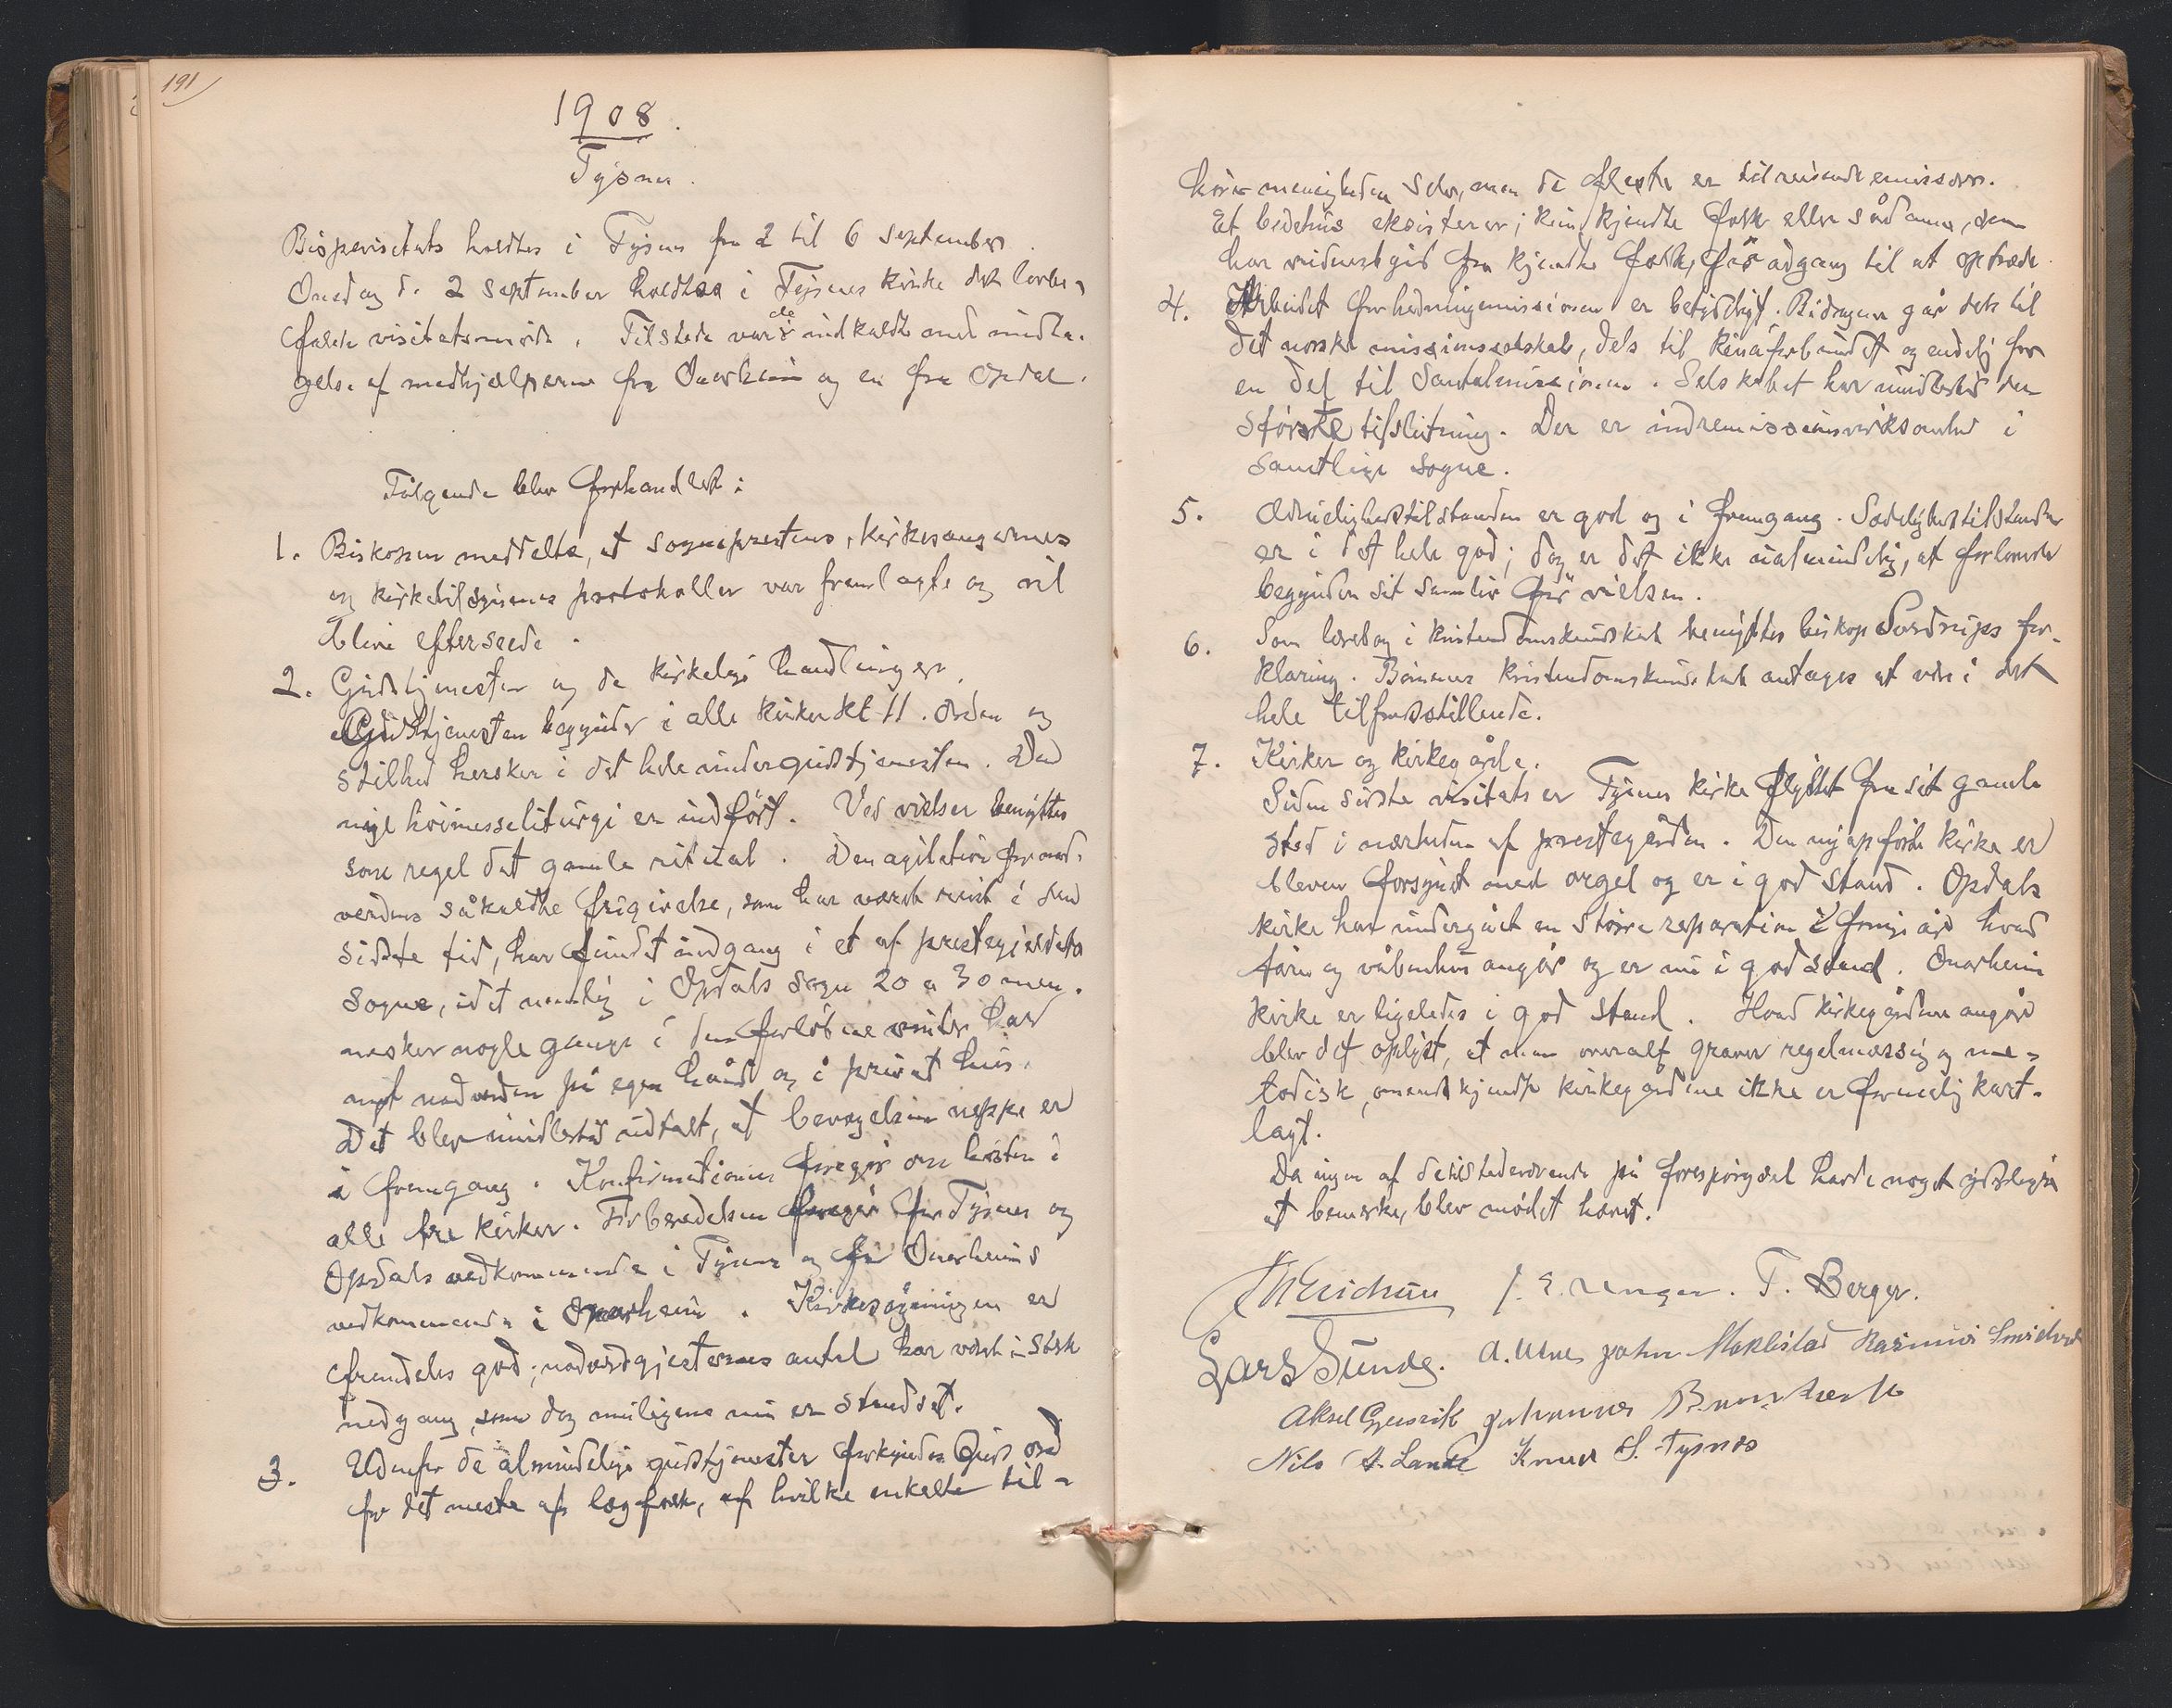 191
1908.
Tysnes.
Bispevisitats holdtes i Tysnes fra 2 til 6 september.
Onsdag d. 2 september holdtes i Tysnes kirke det lovbe-
falede visitatsmøde. Tilstede var de indkaldte med undta-
gelse af medhjælperne fra Onarheim og en fra Opdal.
Følgende blev forhandlet:
1. Biskopen meddelte, at sogneprestens, kirkesangernes
og kirketilsynenes protokoller var fremlagte og vil
blive efterseede.
2. Gudstjenester og de kirkelige handlinger.
Gudstjenesten begynder i alle kirker kl 11. Orden og
stilhed hersker i det hele under gudstjenesten. Den
nye høimesseliturgi er indført. Ved vielser benyttes
som regel det gamle ritual. Den agitation for nad-
verdens såkaldte frigivelse, som har været reist i den
sidste tid, har fundet indgang i et af prestegjeldets
sogne, idet nemlig i Opdals sogn 20 a 30 men-
nesker nogle gange i den forløbne vinter har
nydt nadverden på egen hånd og i privat hus.
Det blev imidlertid udtalt, at bevægelsen neppe er
i fremgang. Konfirmationen foregår om høsten i
alle tre kirker. Forberedelsen foregår for Tysnes og
Opdals vedkommende i Tysnes og for Onarheims
vedkommende i Onarheim. Kirkesøgningen er
fremdeles god; nadverdgjesternes antal har været i sterk
nedgang, som dog muligens nu er standset.
3. Udenfor de almindelige gudstjenester forkyndes Guds ord
for det meste af lægfolk, af hvilke enkelte til-
hører menigheden selv, men de fleste er tilreisende emissærer.
Et bedehus eksisterer; kun kjendte folk eller sådanne, som
har vidnesbyrd fra kjendte folk, får adgang til at optræde.
4. Arbeidet for hedningemissionen er betydeligt. Bidragene går dels til
det norske missionsselskab, dels til Kinaforbundet og endelig for
en del til Santalmissionen. Selskabet har imidlertid den
største tilslutning. Der er indremissionsvirksomhed i
samtlige sogne.
5. Ædruelighedstilstanden er god og i fremgang. Sædelighedstilstanden
er i det hele god; dog er det ikke ualmindelig, at forlovede
begynder sit samliv før vielsen.
6. Som lærebog i kristendomskundskab benyttes biskop Sverdrups for-
klaring. Børnenes kristendomskundskab antages at være i det
hele tilfredsstillende.
7. Kirker og kirkegårde.
Siden sidste visitats er Tysnes kirke flyttet fra sit gamle
sted i nærheden af prestegården. Den nyopførte kirke er
bleven forsynet med orgel og er i god stand. Opdals
kirke har undergået en større reparation i forrige år hvad
tårn og våbenhus angår og er nu i god stand. Onarheim
kirke er ligeledes i god stand. Hvad kirkegårdene angår
blev det oplyst, at man overalt graver regelmæssig og me-
todisk, omendskjendt kirkegårdene ikke er formelig kart-
lagt.
Da ingen af de tilstedeværende på forespørgsel havde noget yderligere
at bemerke, blev mødet hævet.
J. E. Unger. T. Berger.
Lars Sunde. A. Uen John Meklestad Rasmus
Aksel Gjersvik Johannes
Nils A. Lande Knud S. Tysnes